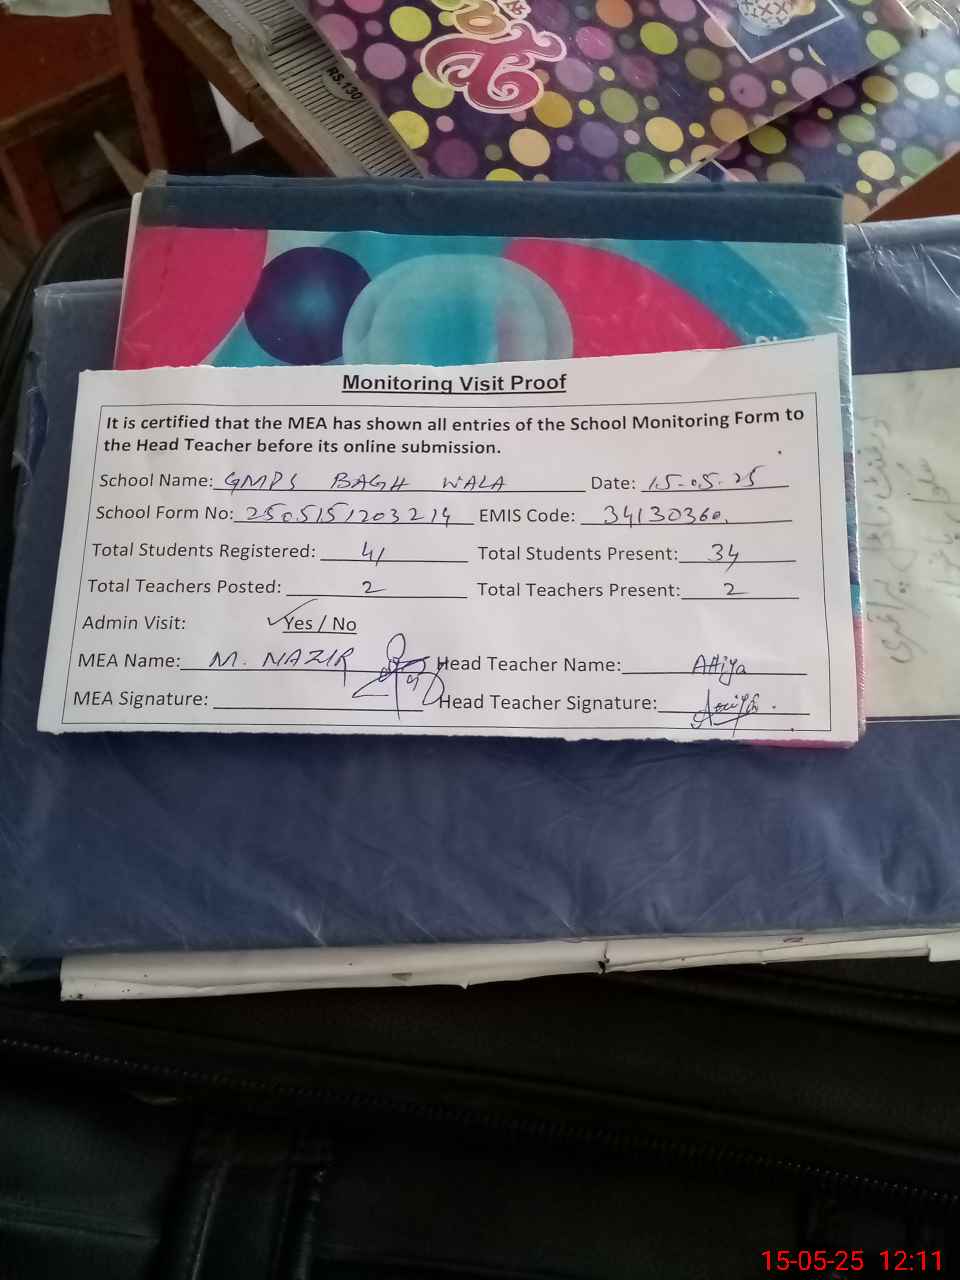 RS.130
Monitoring Visit Proof
It is certified that the MEA has shown all entries of the School Monitoring Form to
the Head Teacher before its online submission.
School Name: GMPS BAGH WALA Date: 15-05-25
School Form No: 2505151203214 EMIS Code: 34130360
Total Students Registered: 41 Total Students Present: 34
Total Teachers Posted: 2 Total Teachers Present: 2
Admin Visit: Yes / No
MEA Name: M. NAZIR Head Teacher Name: Attiya
MEA Signature: Head Teacher Signature:
15-05-25 12:11